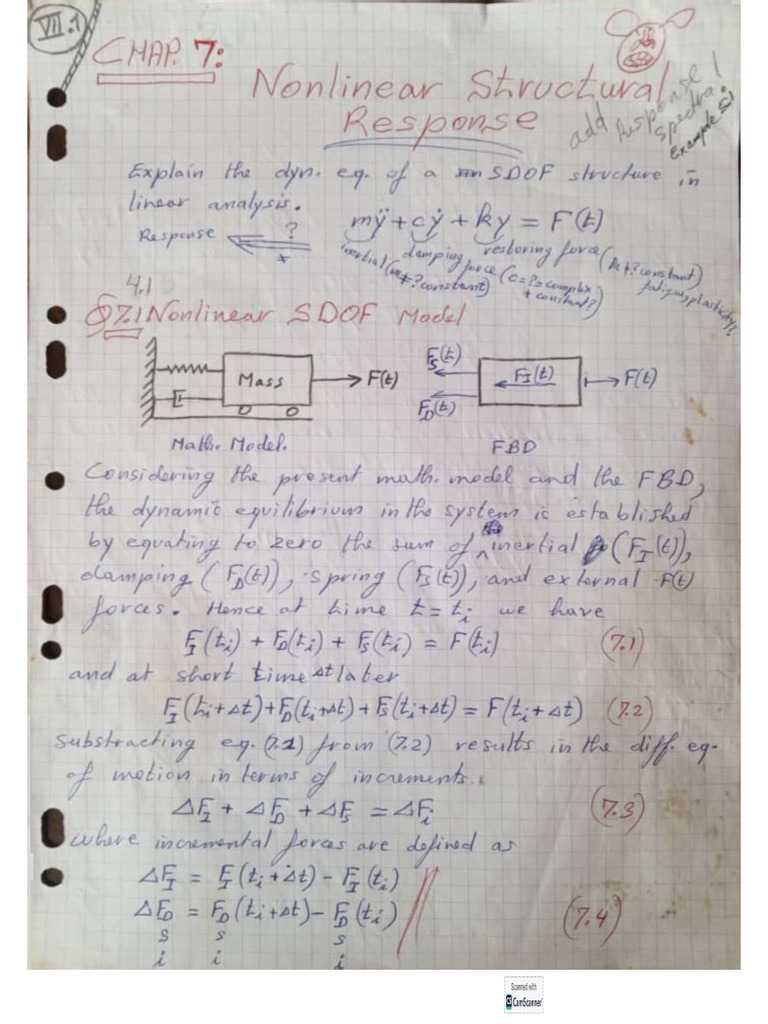 VII.1
CHAP. 7:
Nonlinear Structural
Response
add Response
spectra!
Example
Explain the dyn. eq. of a SDOF structure in
linear analysis.
mÿ + cẏ + ky = F(t)
Response ?
inertial (m ≠? constant)
damping force (c=?=complex
+ constant?)
restoring force (k ≠? constant)
fatigue, plasticity?
4.1
§ 7.1 Nonlinear SDOF Model
Mass
F(t)
Fs(t)
FD(t)
FI(t)
F(t)
Math. Model.
FBD
Considering the present math. model and the FBD,
the dynamic equilibrium in the system is established
by equating to zero the sum of inertial (FI(t)),
damping (FD(t)), spring (Fs(t)), and external F(t)
forces. Hence at time t = ti we have
FI(ti) + FD(ti) + Fs(ti) = F(ti) (7.1)
and at short time Δt later
FI(ti+Δt)+FD(ti+Δt)+Fs(ti+Δt) = F(ti+Δt) (7.2)
Substracting eq. (7.1) from (7.2) results in the diff. eq.
of motion in terms of increments.
ΔFI + ΔFD + ΔFs = ΔFi (7.3)
where incremental forces are defined as
ΔFI = FI(ti+Δt) - FI(ti)
ΔFD = FD(ti+Δt) - FD(ti) (7.4)
s s s
i i i
Scanned with
CS CamScanner